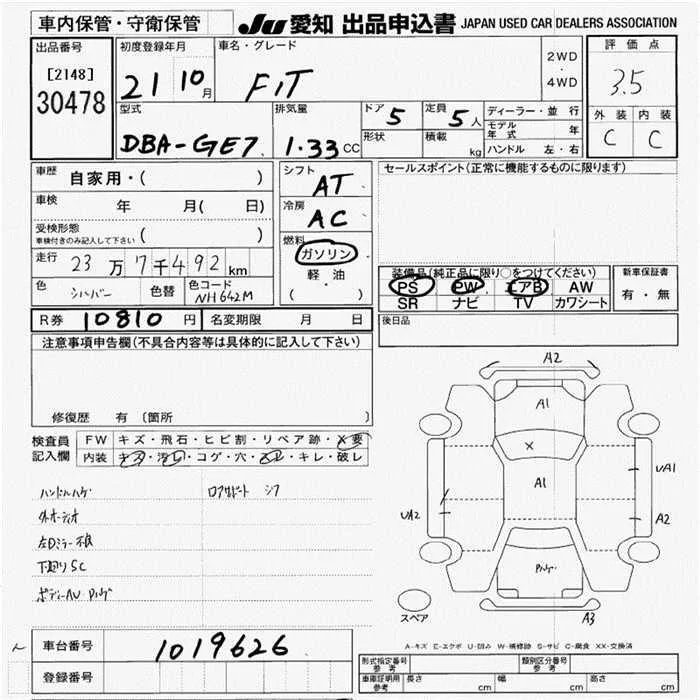 車内保管・守衛保管
JU 愛知 出品申込書 JAPAN USED CAR DEALERS ASSOCIATION
出品番号
[2148]
30478
初度登録年月
21 10月
車名・グレード
FIT
2WD
・
4WD
評価点
3.5
外装 内装
C C
型式
DBA-GE7
排気量
1.33CC
ドア 5
定員 5人
形状
積載 kg
ディーラー・並行
モデル年式 年
ハンドル 左・右
車歴 自家用・( )
車検 年 月( 日)
受検形態
車検付きのみ記入して下さい ( )
走行 23万7千492km
色 シルバー 色替 色コード NH642M
シフト AT
冷房 AC
燃料
ガソリン
軽油
( )
セールスポイント(正常に機能するものに限ります)
装備品(純正品に限り○をつけてください)
PS PW エアB AW
SR ナビ TV カワシート
新車保証書
有・無
R券 10810円 名変期限 月 日
後日品
注意事項申告欄(不具合内容等は具体的に記入して下さい)
修復歴 有 〔箇所 〕
検査員記入欄
FW キズ・飛石・ヒビ割・リペア跡・X要
内装 キズ・汚れ・コゲ・穴・スレ・キレ・破レ
ハンドルハゲ ロアサポート シフ
外オーディオ
左Dミラー不良
下廻りSC
A2
A1
X
A1
UA1
UA2
A2
A3
スペア
A-キズ E-エクボ U-凹み W-補修跡 S-サビ C-腐食 XX-交換済
車台番号 1019626
登録番号
形式指定番号 参考
類別区分番号 参考
車庫証明用 参考 長さ cm 幅 cm 高さ cm